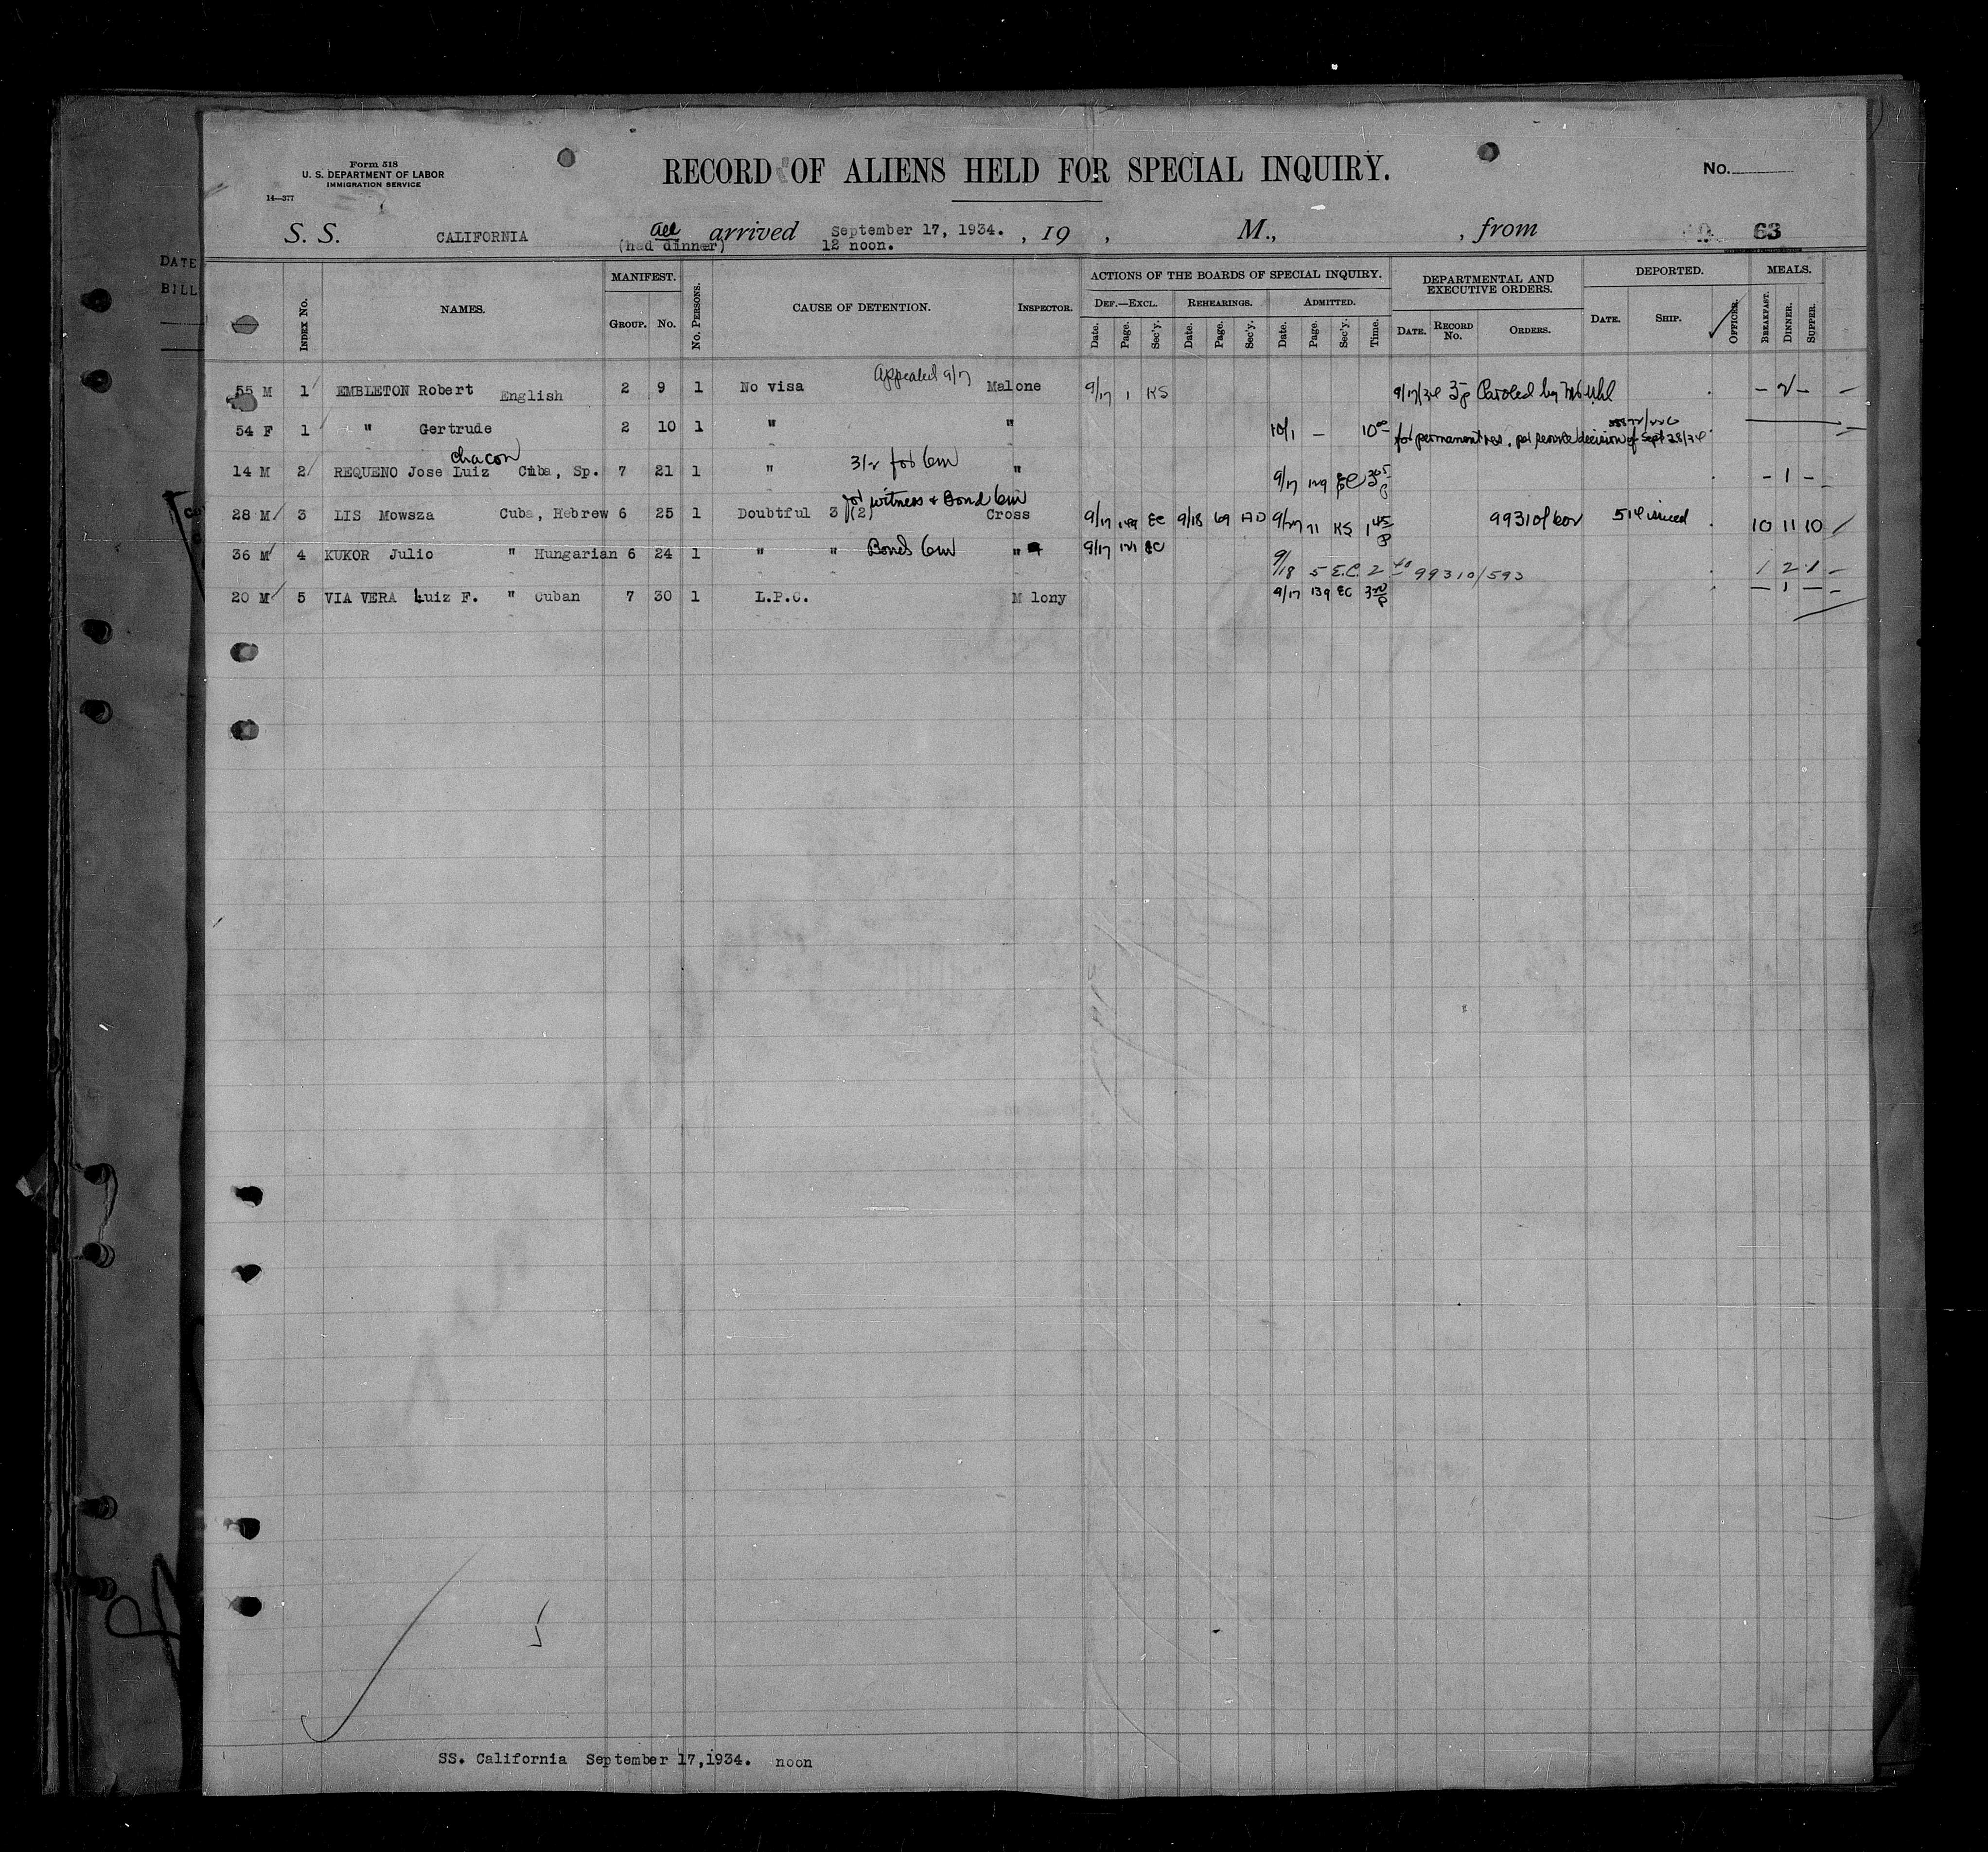 Form 518
U. S. DEPARTMENT OF LABOR
IMMIGRATION SERVICE
14—577
RECORD OF ALIENS HELD FOR SPECIAL INQUIRY.
No.
S. S. CALIFORNIA all (had dinner) arrived September 17, 1934. 12 noon. , 19 , M., , from 63
DATE
BILL
INDEX No. NAMES. MANIFEST. GROUP. No. No. PERSONS. CAUSE OF DETENTION. INSPECTOR. ACTIONS OF THE BOARDS OF SPECIAL INQUIRY. DEF.—EXCL. Date. Page. Sec'y. REHEARINGS. Date. Page. Sec'y. ADMITTED. Date. Page. Sec'y. Time. DEPARTMENTAL AND EXECUTIVE ORDERS. DATE. RECORD No. ORDERS. DEPORTED. DATE. SHIP. OFFICER. MEALS. BREAKFAST. DINNER. SUPPER.
55 M 1 EMBLETON Robert English 2 9 1 No visa Appealed 9/17 Malone 9/17 1 KS 9/17/34 Paroled by – 2 – –
54 F 1 " Gertrude 2 10 1 " " 10/1 – 10 00 for permanent res. per decision of Sept 28/34
14 M 2 REQUENO Jose Luiz Chacon Cuba, Sp. 7 21 1 " 3/2 for 6m " 9/17 129 EC 3 05 p – 1 – –
28 M 3 LIS Mowsza Cuba, Hebrew 6 25 1 Doubtful 3 (2) for witness & Bond 6m Cross 9/17 149 EC 9/18 69 AD 9/27 71 KS 1 45 P 99310/602 514 issued 10 11 10
36 M 4 KUKOR Julio " Hungarian 6 24 1 " " Bonds 6m " 9/17 121 EC 9/18 5 E.C. 2 40 99310/593 1 2 1 –
20 M 5 VIA VERA Luiz F. " Cuban 7 30 1 L.P.C. M lony 9/17 139 EC 3 20 P – 1 – –
5
SS. California September 17,1934. noon